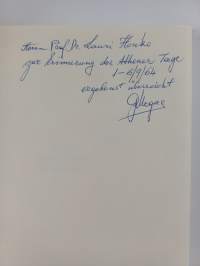 Herrn Prof. Dr. Lauri Honko
zur Erinnerung der Athener Tage
1-6/9/64
ergebenst überreicht